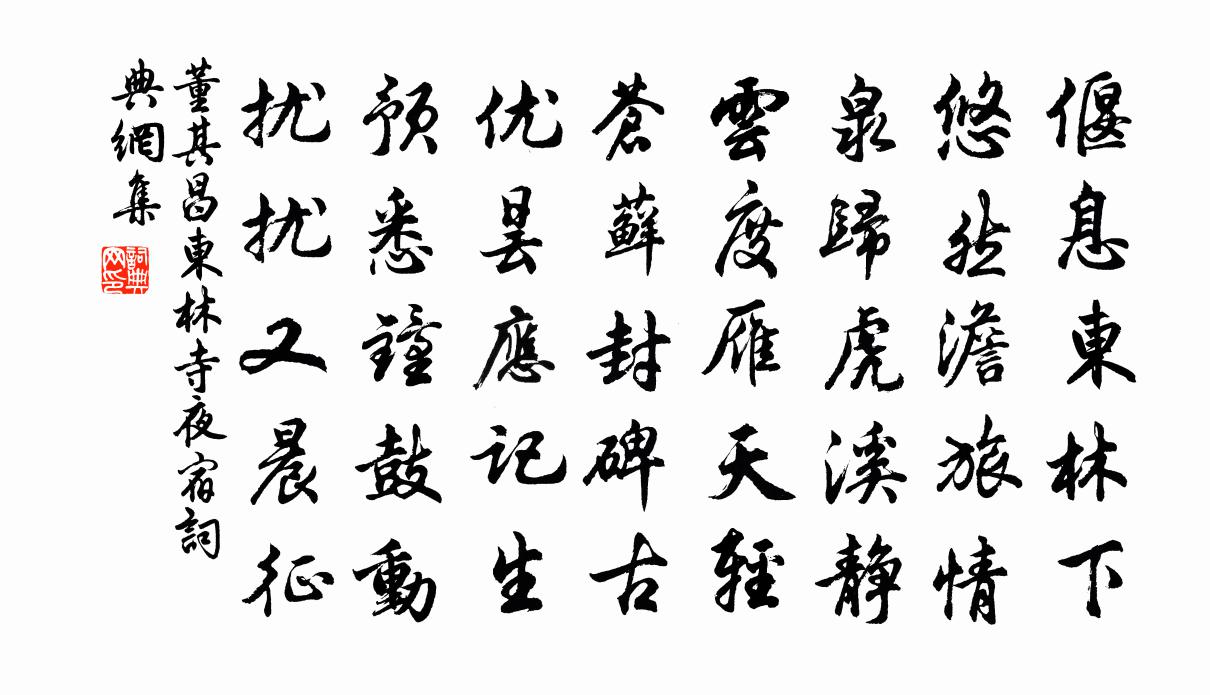 偃息東林下
悠然澹旅情
泉歸虎溪静
雲度雁天輕
蒼蘚封碑古
优昙應记生
预悉鐘鼓動
扰扰又晨征
董其昌東林寺夜宿詞
典網集
詞典
网印